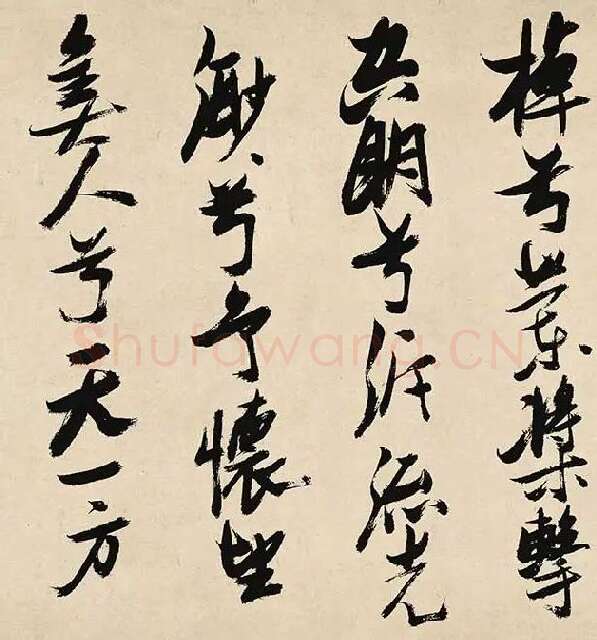 棹兮蘭槳擊
空明兮泝流光
渺々兮予懷望
美人兮天一方
Shufawang.CN